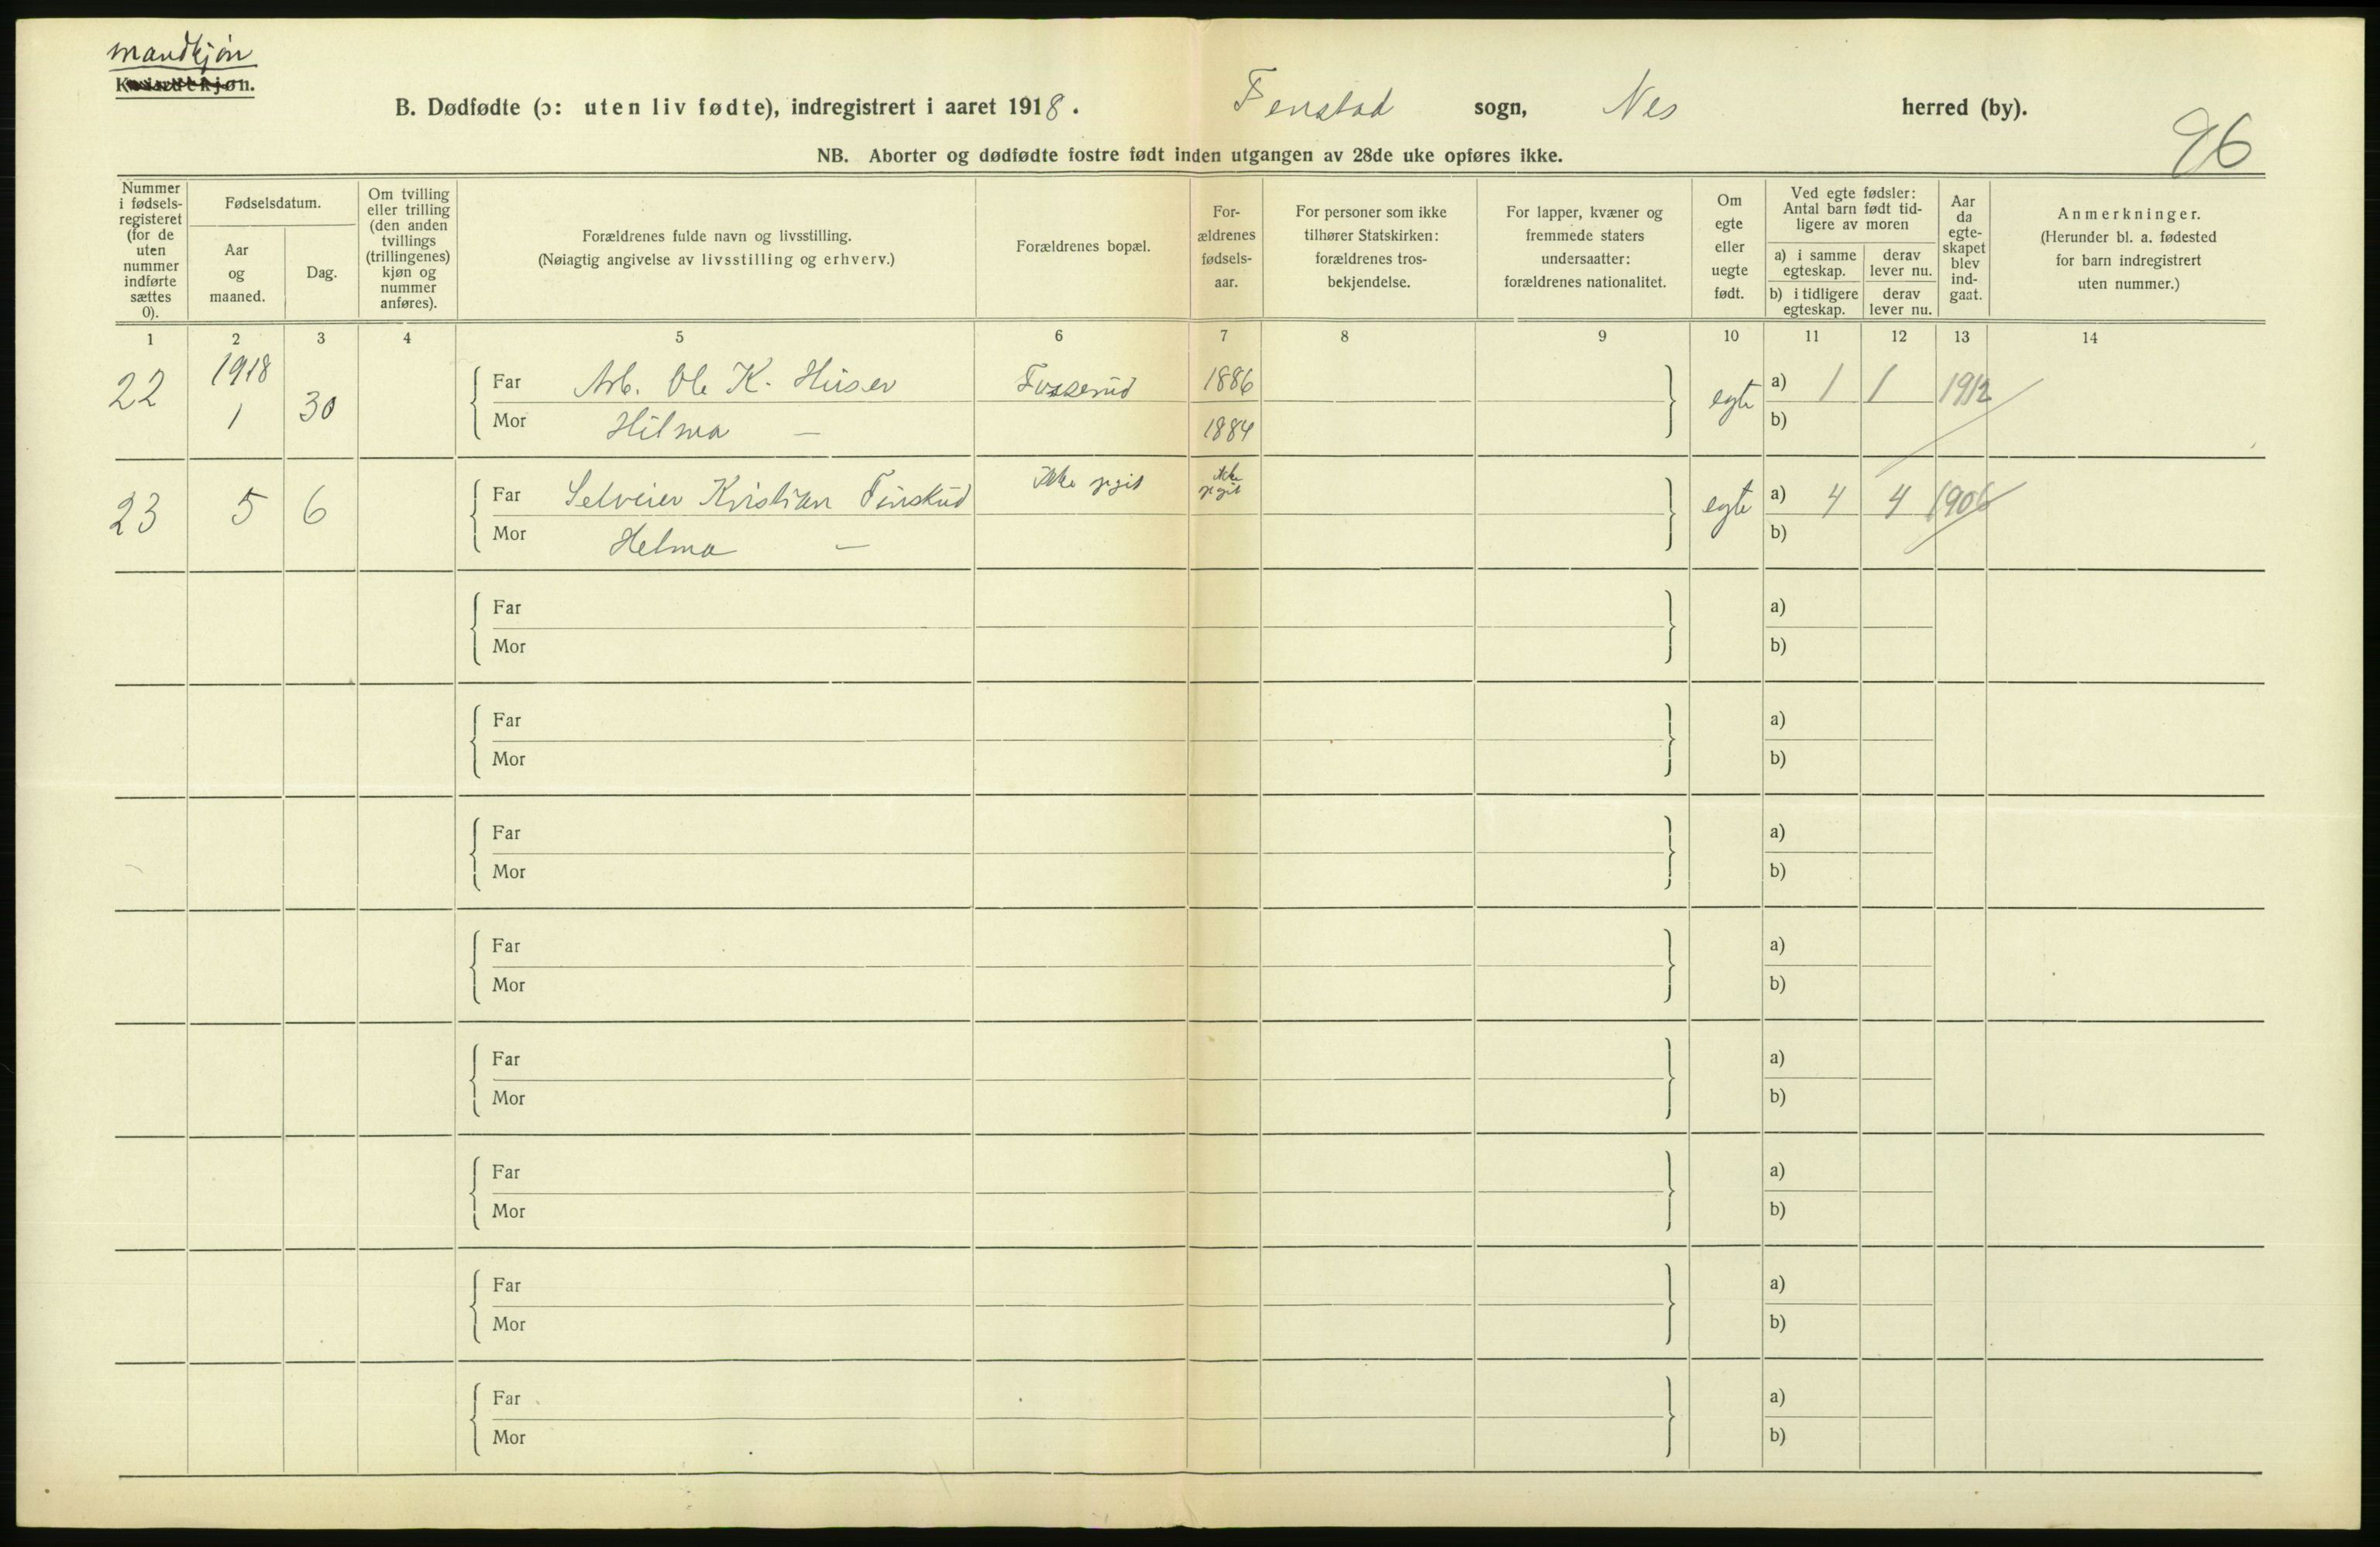 Mandkjøn
Kvindekjøn.
B. Dødfødte (ɔ: uten liv fødte), indregistrert i aaret 1918. Fenstad sogn, Nes herred (by).
96
NB. Aborter og dødfødte fostre født inden utgangen av 28de uke opføres ikke.
Nummer i fødsels-registeret (for de uten nummer indførte sættes 0).
Fødselsdatum.
Aar og maaned.
Dag.
Om tvilling eller trilling (den anden tvillings (trillingenes) kjøn og nummer anføres).
Forældrenes fulde navn og livsstilling.
(Nøiagtig angivelse av livsstilling og erhverv.)
Forældrenes bopæl.
For-ældrenes fødsels-aar.
For personer som ikke tilhører Statskirken: forældrenes tros-bekjendelse.
For lapper, kvæner og fremmede staters undersaatter: forældrenes nationalitet.
Om egte eller uegte født.
Ved egte fødsler: Antal barn født tid-ligere av moren
a) i samme egteskap.
derav lever nu.
b) i tidligere egteskap.
derav lever nu.
Aar da egte-skapet blev ind-gaat.
Anmerkninger.
(Herunder bl. a. fødested for barn indregistrert uten nummer.)
1 2 3 4 5 6 7 8 9 10 11 12 13 14
22 1918 1 30 Far Arb. Ole K. Huser Fosserud 1886 egte a) 1 1 1912
Mor Hilma — 1884 b)
23 5 6 Far Selveier Kristian Finskud Ikke opgit ikke opgit egte a) 4 4 1906
Mor Helma — b)
Far a)
Mor b)
Far a)
Mor b)
Far a)
Mor b)
Far a)
Mor b)
Far a)
Mor b)
Far a)
Mor b)
Far a)
Mor b)
Far a)
Mor b)